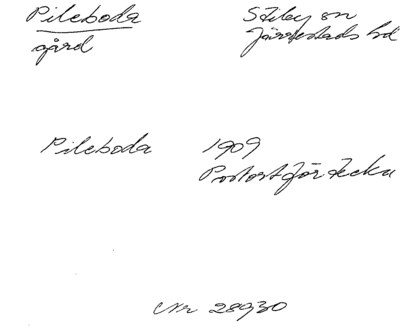 Pileboda
gård
Stiby sn
Järrestads hd
Pileboda 1909
Postortförteckn
Nr 28930